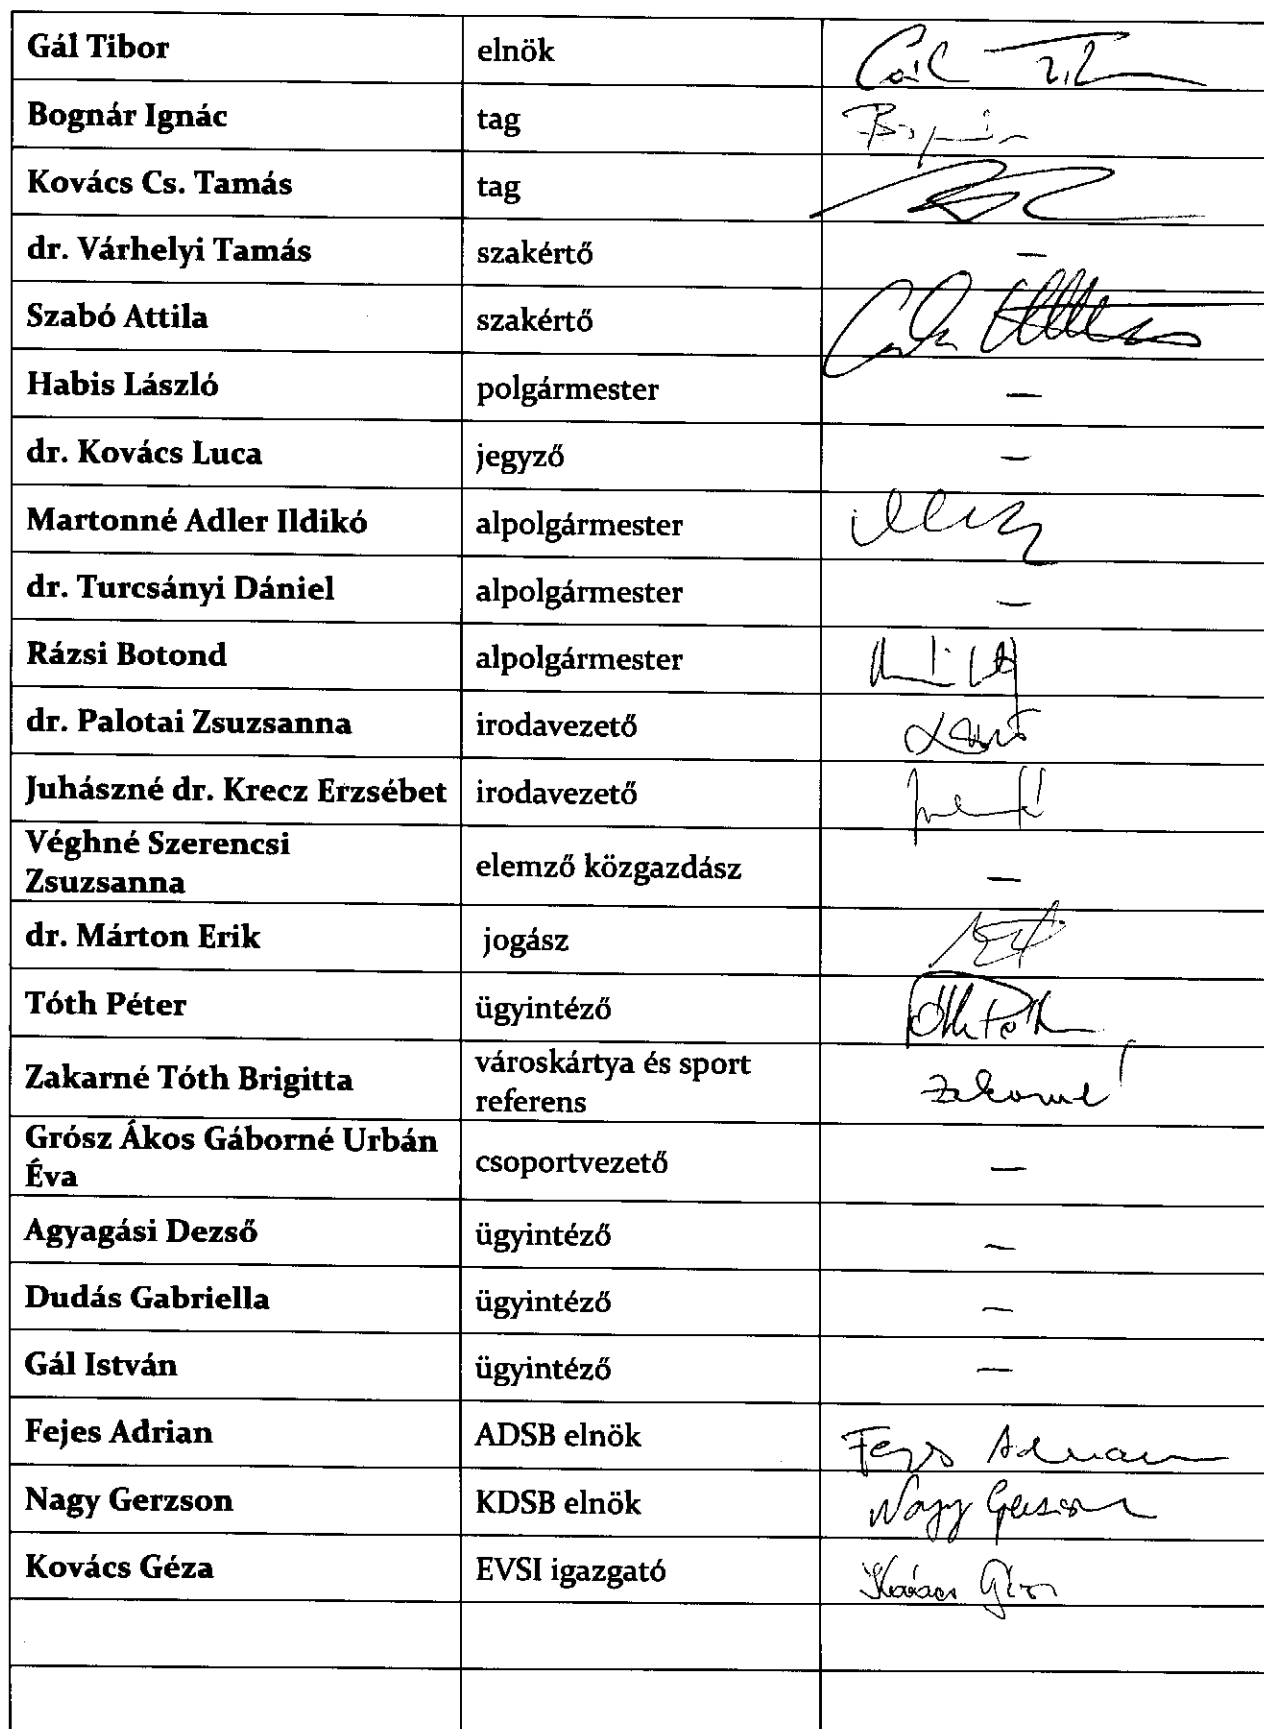 Gál Tibor elnök Gál Tib
Bognár Ignác tag Bognár
Kovács Cs. Tamás tag
dr. Várhelyi Tamás szakértő –
Szabó Attila szakértő
Habis László polgármester –
dr. Kovács Luca jegyző –
Martonné Adler Ildikó alpolgármester
dr. Turcsányi Dániel alpolgármester –
Rázsi Botond alpolgármester
dr. Palotai Zsuzsanna irodavezető
Juhászné dr. Krecz Erzsébet irodavezető
Véghné Szerencsi
Zsuzsanna elemző közgazdász –
dr. Márton Erik jogász
Tóth Péter ügyintéző
Zakarné Tóth Brigitta városkártya és sport
referens Zakarné
Grósz Ákos Gáborné Urbán
Éva csoportvezető –
Agyagási Dezső ügyintéző –
Dudás Gabriella ügyintéző –
Gál István ügyintéző –
Fejes Adrian ADSB elnök Fejes Adrian
Nagy Gerzson KDSB elnök Nagy Gerzson
Kovács Géza EVSI igazgató Kovács Géza